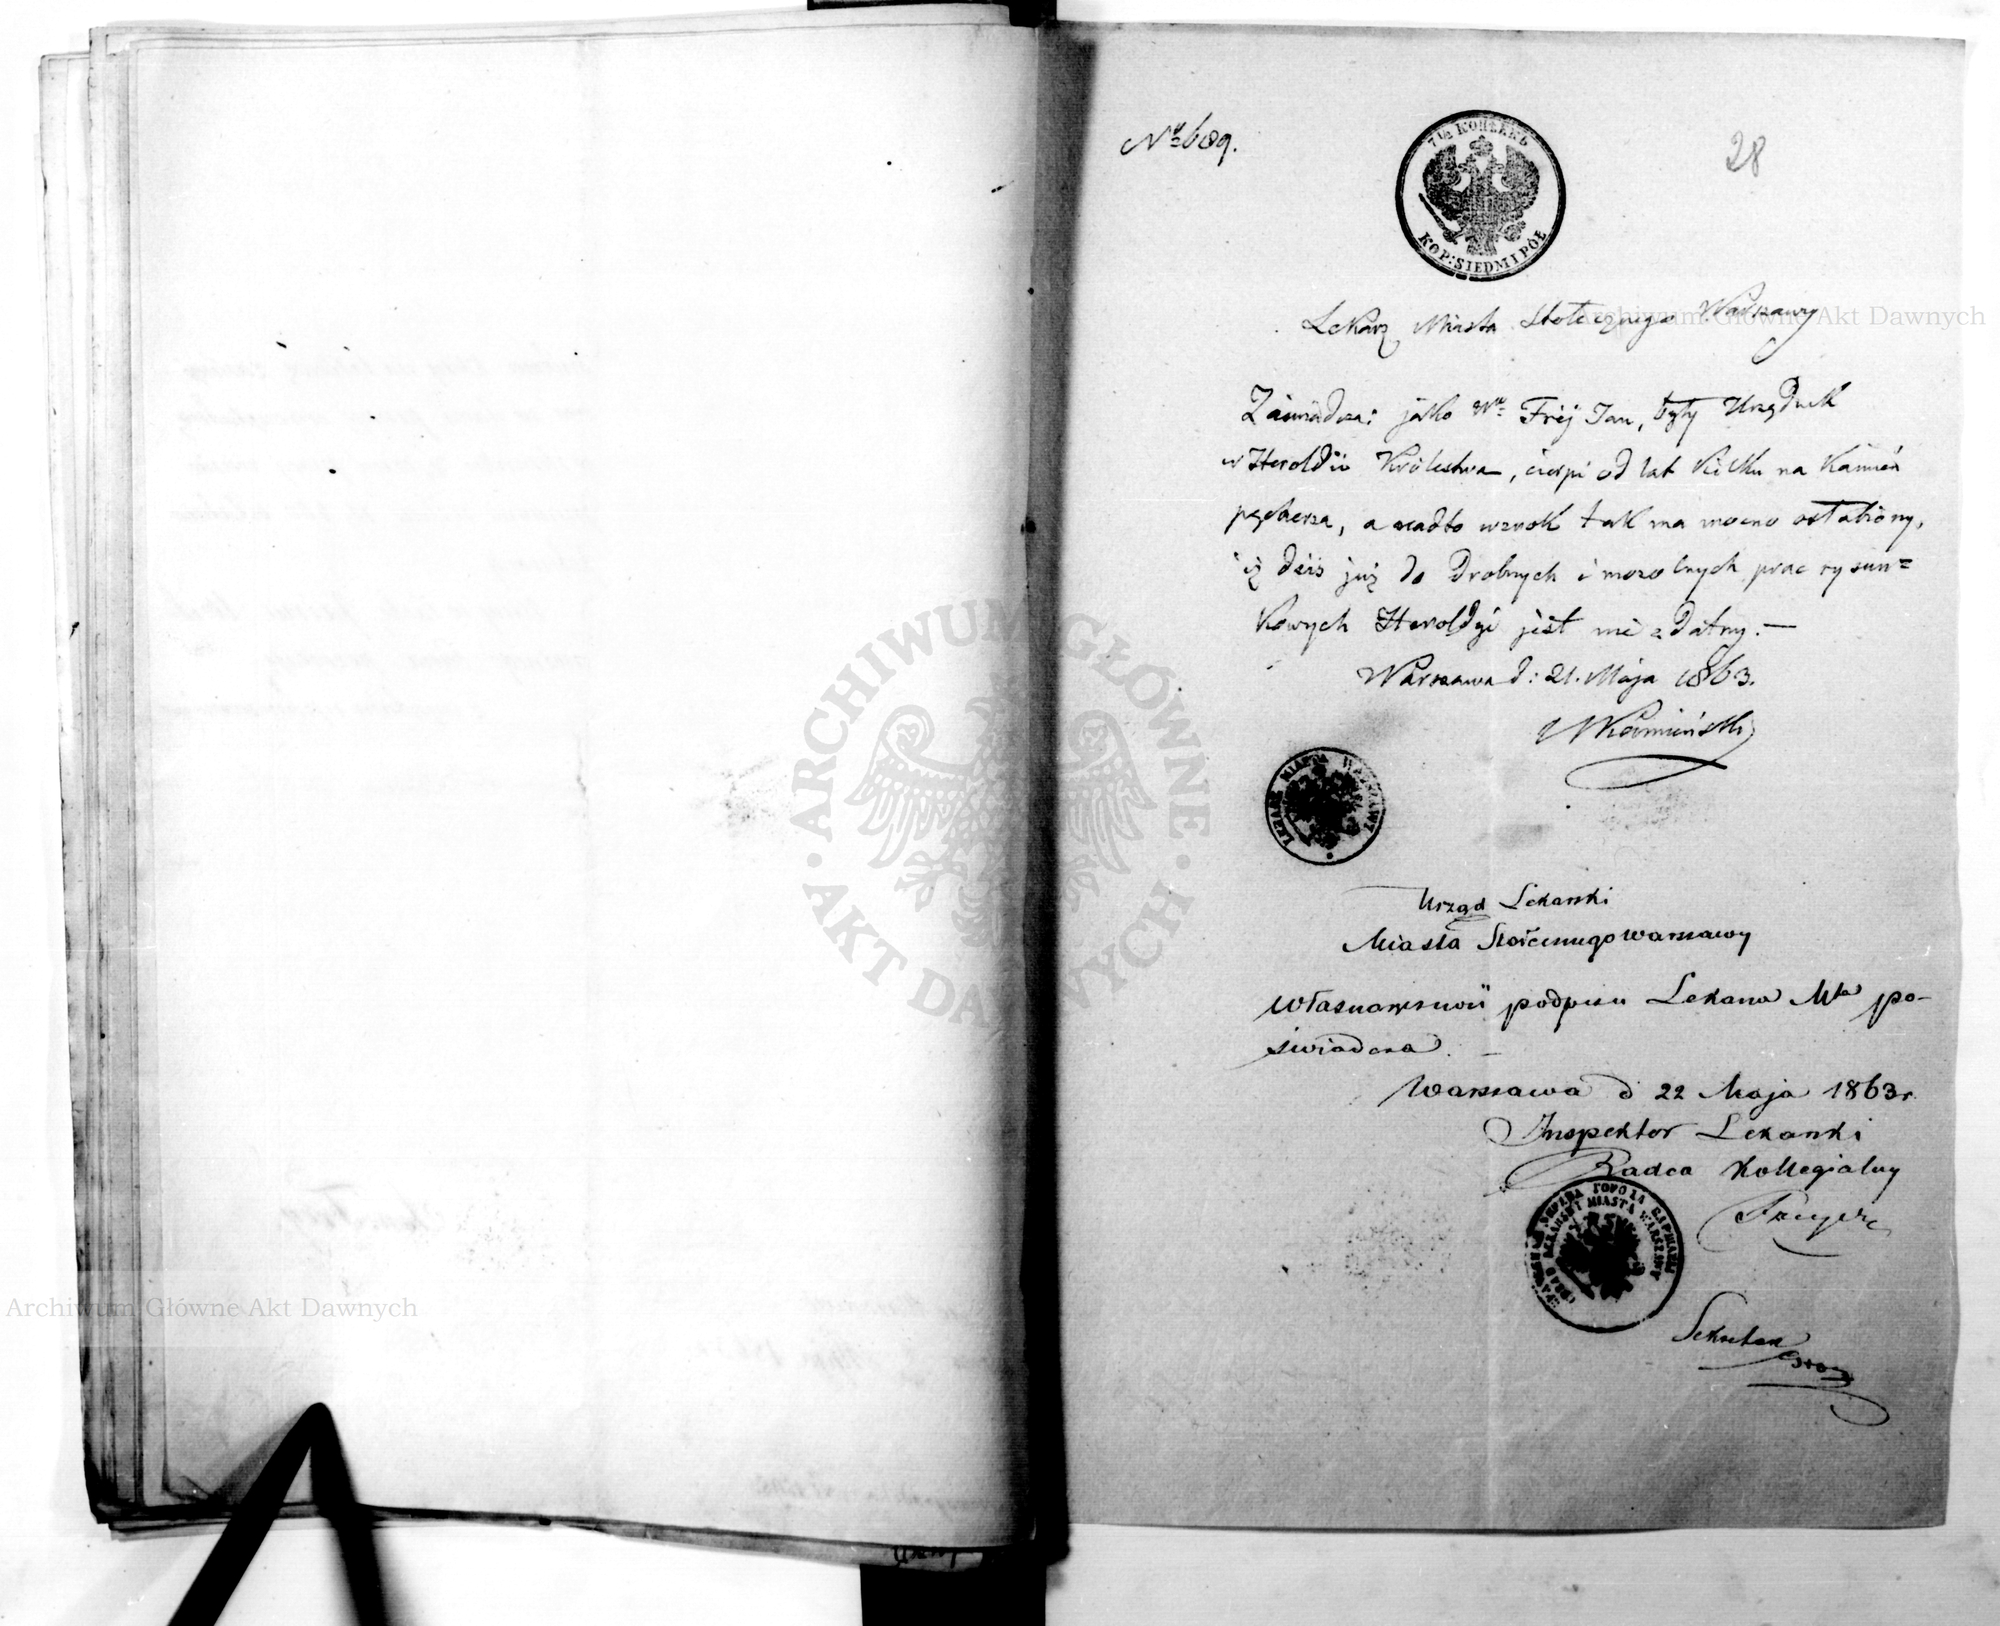 Nro 689.
28
7½ КОПѢЕКЪ
KOP: SIEDM I PÓŁ
Lekarz Miasta Stołecznego Warszawy
Zaświadcza: jako Wny Frej Jan, były Urzędnik
w Heroldii Królestwa, cierpi od lat kilku na kamień
pęcherza, a nadto wzrok tak ma mocno osłabiony,
iż dziś już do drobnych i mozolnych prac rysun=
kowych Heroldyi jest nie zdatny. —
Warszawa d: 21. Maja 1863.
LEKARZ MIASTA WARSZAWY
Urząd Lekarski
Miasta Stołecznego Warszawy
Własnoręczność podpisu Lekarza Mta po-
świadcza. —
Warszawa d 22 Maja 1863 r.
Inspektor Lekarski
Radca Kollegialny
URZĄD LEKARSKI MIASTA WARSZAWY
Sekretarz
Archiwum Główne Akt Dawnych
Archiwum Główne Akt Dawnych
ARCHIWUM GŁÓWNE · AKT DAWNYCH ·